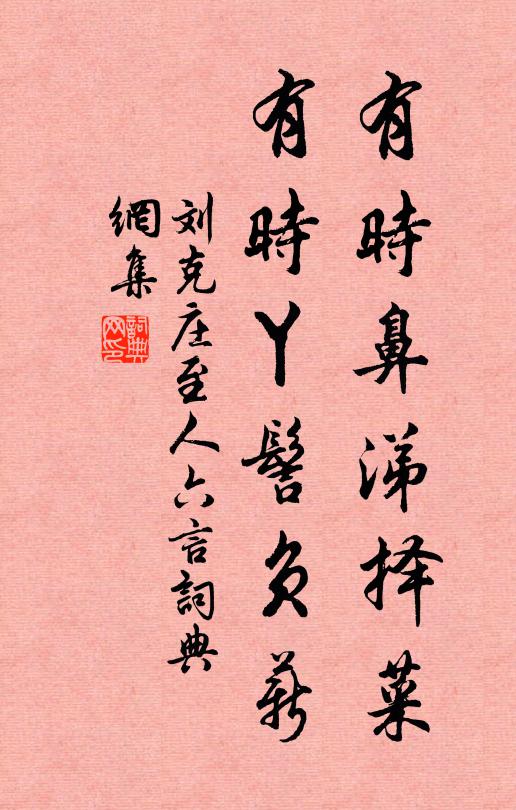 有時鼻涕择菜
有時丫髻负薪
刘克庄至人六言詞典
網集
詞典網印